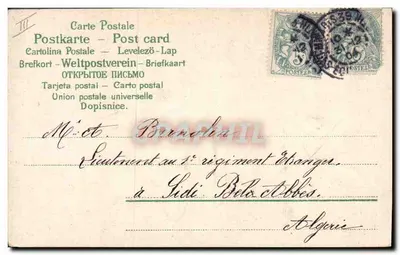 III
Carte Postale
Postkarte - Post card
Cartolina Postale - Levelező-Lap
Brefkort - Weltpostverein - Briefkaart
ОТКРЫТОЕ ПИСЬМО
Tarjeta postal - Carto postal
Union postale universelle
Dopisnice.
Mr A.
Lieutenant au 1er régiment Etranger
à Sidi Bel Abbès
Algérie